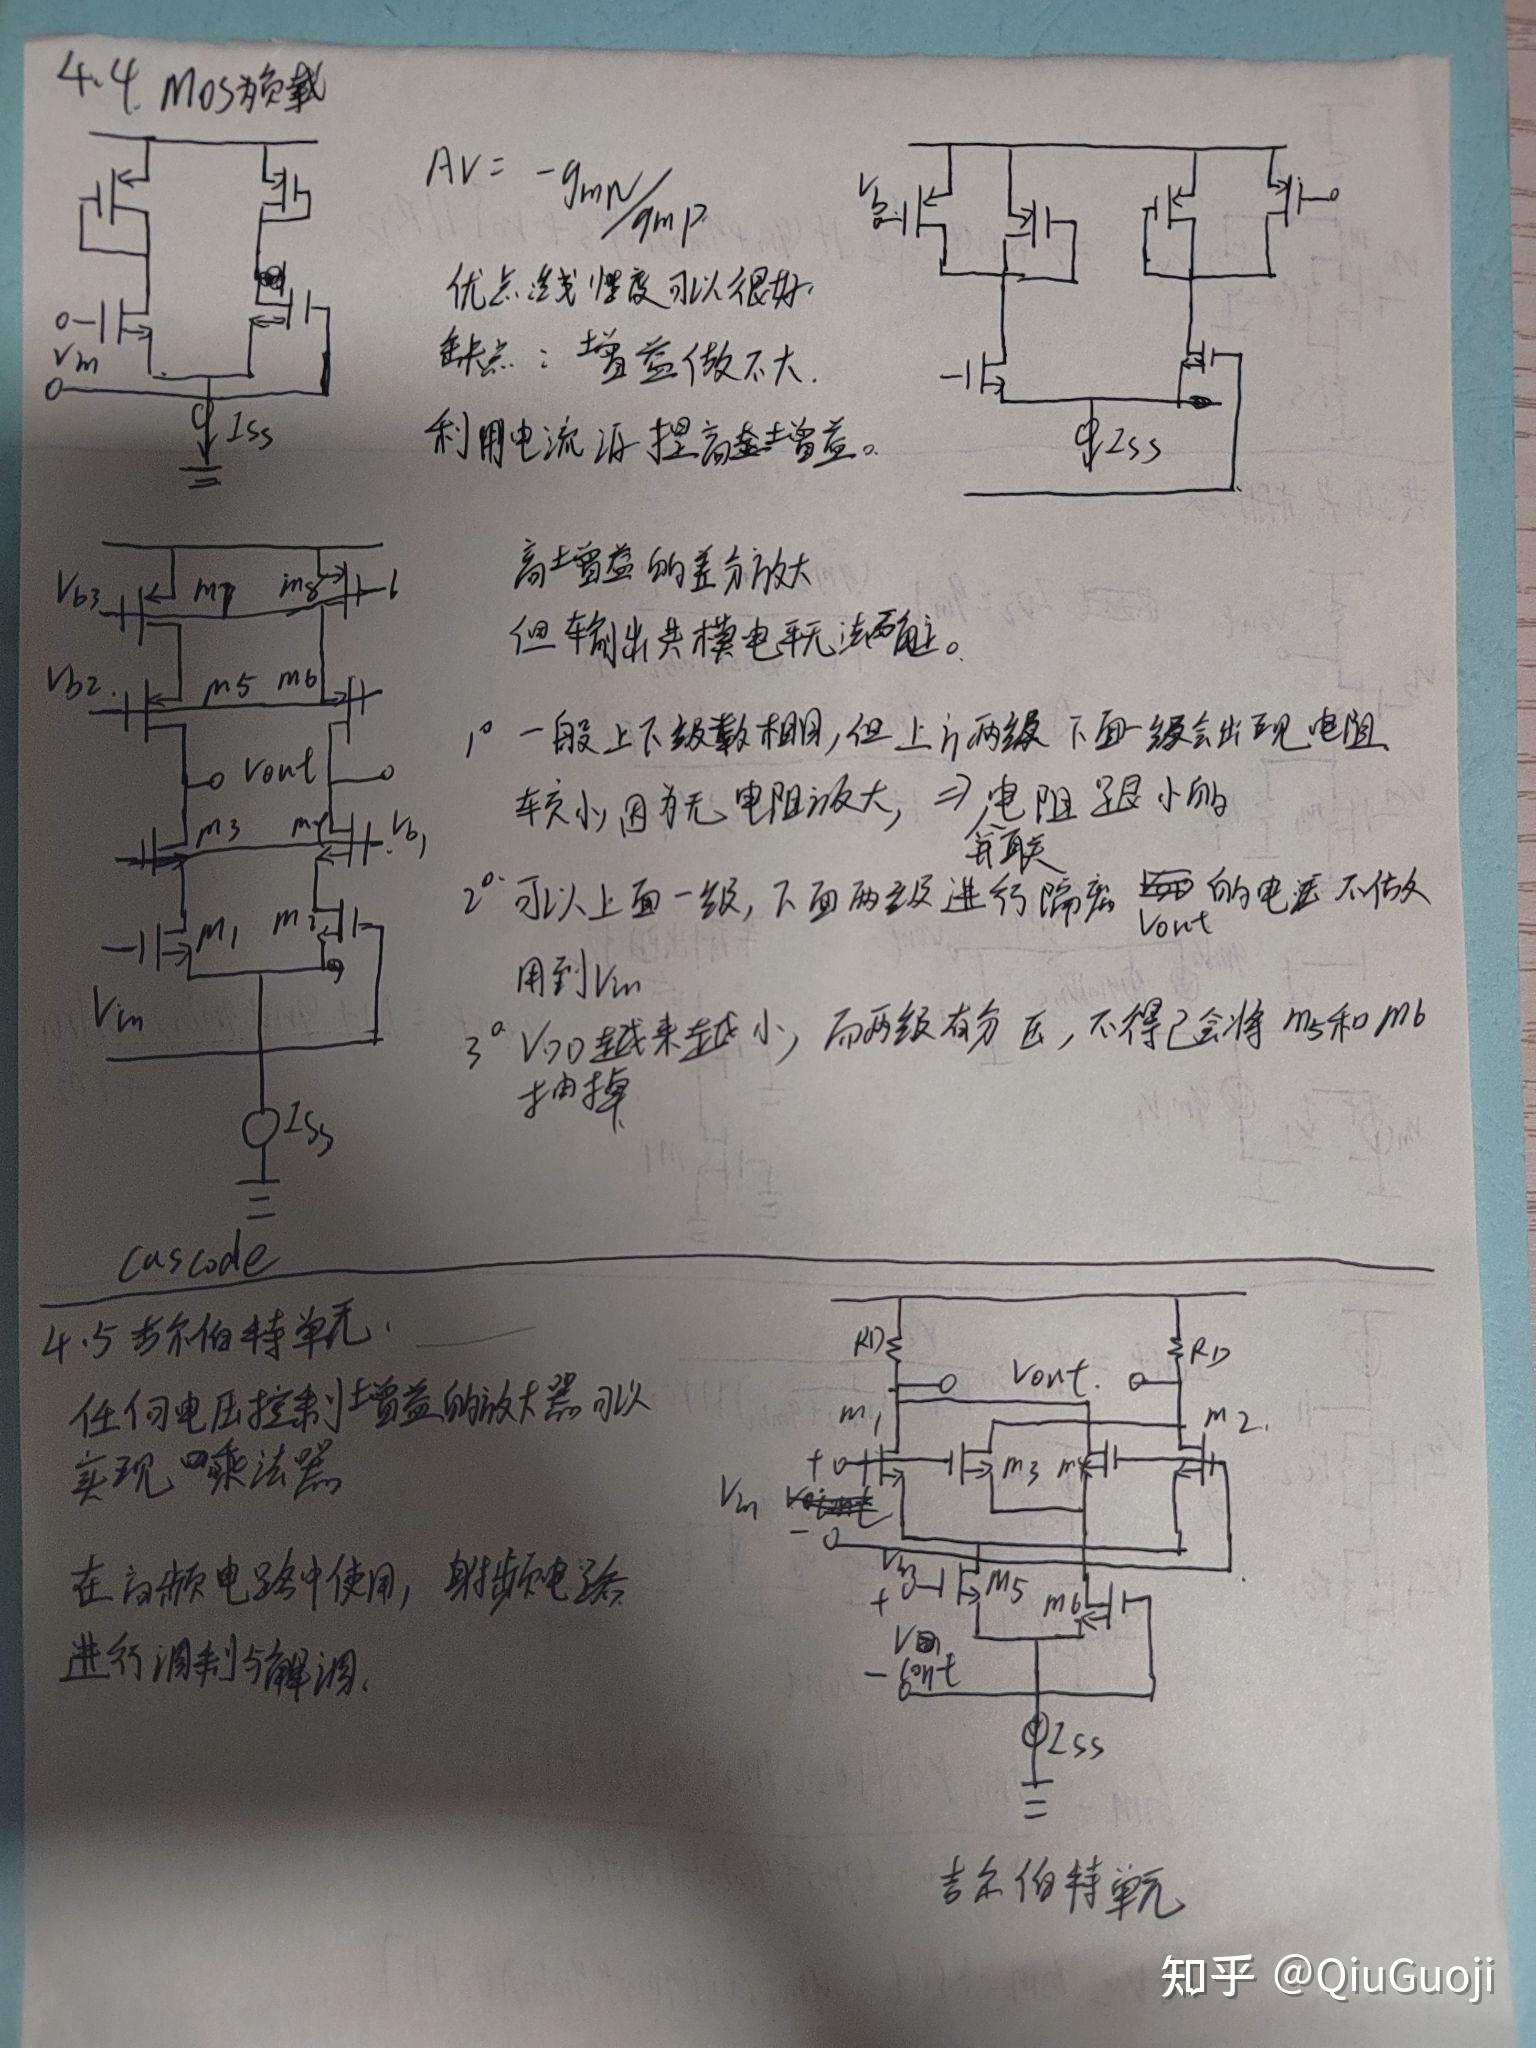 4.4. MOS为负载
AV = -gmN/gmP
优点线性度可以很好.
缺点: 增益做不大.
利用电流源提高增益。
Vin
Iss
Vb
Iss
高增益的差分放大
但输出共模电平无法确定。
Vb3
M7
M8
Vb2.
M5
M6
Vout
M3
M4
Vb1
M1
M2
Vin
Iss
cascode
1° 一般上下级数相同,但上方两级下面一级会出现电阻
较小,因为无电阻放大, ⇒ 电阻跟小的
并联
2° 可以上面一级,下面两级进行隔离 Vout 的电压不做
用到Vin
3° VDD越来越小, 而两级有分压, 不得已会将 M5和M6
抽掉
4.5 吉尔伯特单元.
任何电压控制增益的放大器可以
实现 乘法器
在高频电路中使用, 射频电路
进行调制与解调.
RD
RD
Vout.
M1
M2.
+
M3
M4
Vin
-
M5
M6
+
- cont
Iss
吉尔伯特单元
知乎 @QiuGuoji